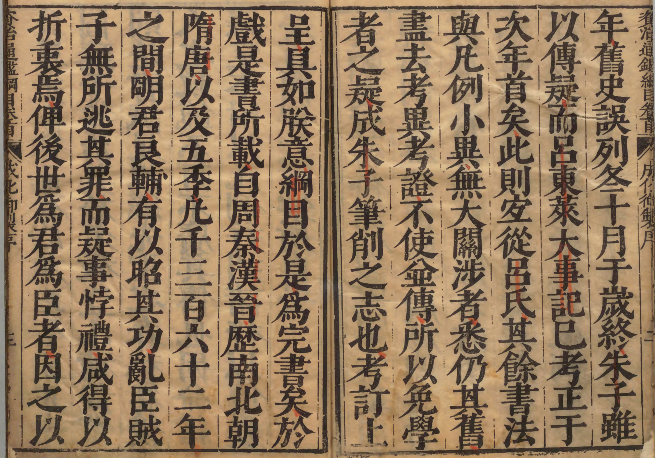 年舊史誤列冬十月于歲終朱子雖
以傳疑而呂東萊大事記已考正于
次年首矣此則宜從呂氏其餘書法
與凡例小異無大關涉者悉仍其舊
盡去考異考證不使並傳所以免學
者之疑成朱子筆削之志也考訂上
呈具如朕意綱目於是為完書矣於
戲是書所載自周秦漢晉歷南北朝
隋唐以及五季凡千三百六十二年
之間明君良輔有以昭其功亂臣賊
子無所逃其罪而疑事悖禮咸得以
折衷焉俾後世為君為臣者因之以